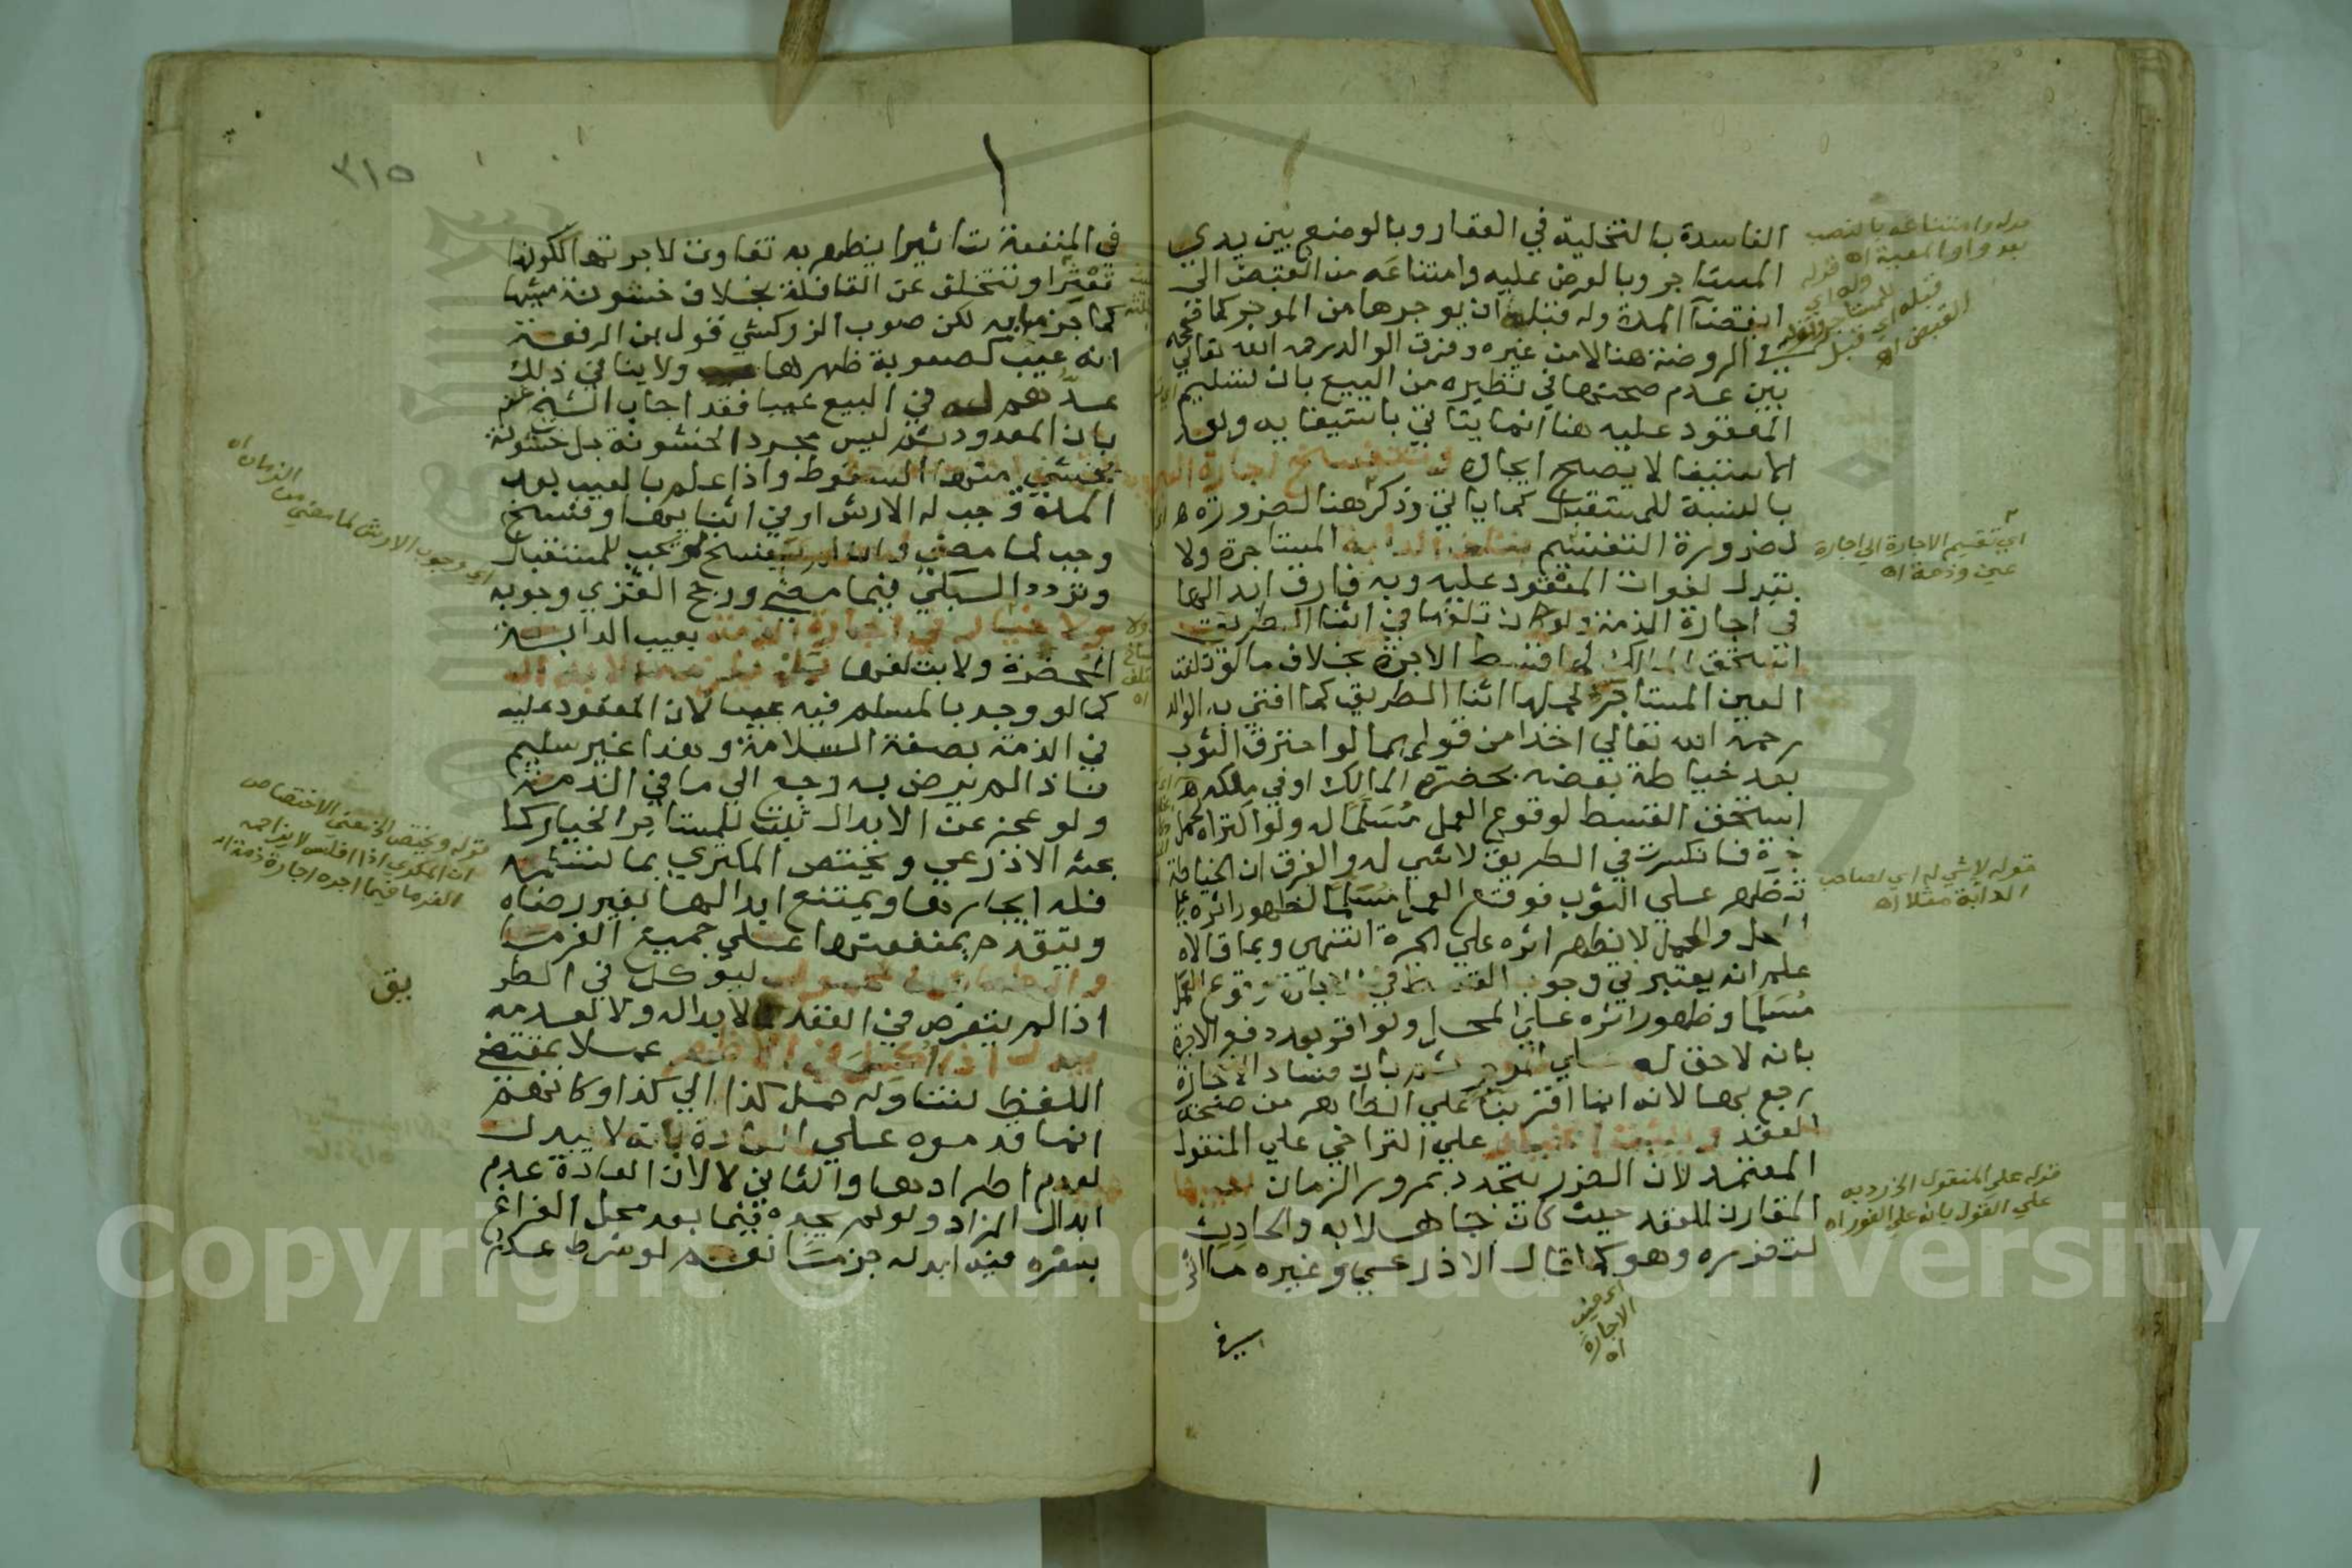 الفاسدة بالتخلية في العقار وبالوضع بين يدي
المستاجر وبالعرض عليه وامتناعه من القبض الى
انقضآ المدة وله قبله ان يوجرها من الموجر كما صححه
في الروضة هنا لا من غيره وفرق الوالد رحمه الله تعالي
بين عدم صحتها في نظيره من البيع بان تسليم
المعقود عليه هنا انما يتاتي باستيفايه وبعد
الاستيفا لا يصح ايجاره وتنفسخ اجارة العين
بالنسبة للمستقبل كما ياتي وذكر هنا لضرورة
لضرورة التقسيم بتلف الدابة المستاجرة ولا
تبدل لفوات المعقود عليه وبه فارق ابدالها
في اجارة الذمة ولو كان تلفها في اثنا الطريق
استحق المالك لها قسط الاجرة بخلاف ما لو تلفت
العين المستاجر لحملها اثنا الطريق كما افتي به الوالد
رحمه الله تعالي اخذا من قولهما لو احترق الثوب
بعد خياطة بعضه بحضرة المالك او في ملكه
استحق القسط لوقوع العمل مُسَلَّمًا له ولو اكتراه لحمل
جرة فانكسرت في الطريق لا شي له والفرق ان الخياطة
تظهر علي الثوب فوقع العمل مُسَلَّمًا لظهور اثره علي
المحل والحمل لا يظهر اثره علي الجرة انتهى وبما قالاه
علم انه يعتبر في وجوب القسط في الاجارة وقوع العمل
مُسَلَّمًا وظهور اثره علي المحل ولو اقر بعد دفع الاجرة
بانه لا حق له علي الموجر ثم بان فساد الاجارة
رجع بها لانه انما اقر بنا علي الظاهر من صحة
العقد ويثبت الخيار علي التراخي علي المنقول
المعتمد لان الضرر يتجدد بمرور الزمان بعيبها
المقارن للعقد حيث كان جاهلا به والحادث
لتضرره وهو كما قال الاذرعي وغيره ما اثر
قوله وامتناعه بالنصب
بعد واو المعية اه قوله
وله اي
للمستاجر وقوله
قبله اي قبل
القبض اه
اي تقسيم الاجارة الي اجارة
عين وذمة اه
قوله لا شي له اي لصاحب
الدابة مثلا اه
قوله علي المنقول الخ رد به
علي القول بانه علي الفور اه
الاجارة
اه
٣١٥
في المنفعة تاثيرا يظهر به تفاوت لاجرتها لكونها
تعثر او تتخلف عن القافلة بخلاف خشونة مشيها
كما جزما به لكن صوب الزركشي قول بن الرفعة
انه عيب كصعوبة ظهرها ولا ينافي ذلك
عدهم له في البيع عيبا فقد اجاب الشيخ عنه
بان المعدود ثم ليس مجرد الخشونة بل خشونة
يخشي منها السقوط واذا علم بالعيب بعد
المدة وجب له الارش او في اثنايها وفسخ
وجب لما مضي وان لم يفسخ لم يجب للمستقبل
وتردد السبكي فيما مضي ورجح الغزي وجوبه
ولا خيار في اجارة الذمة بعيب الدابة
المحضرة ولا بتلفها بل يلزمه الابدال
كما لو وجد بالمسلم فيه عيبا لان المعقود عليه
في الذمة بصفة السلامة وهذا غير سليم
فاذا لم يرض به رجع الي ما في الذمة
ولو عجز عن الابدال ثبت للمستاجر الخيار كما
بحثه الاذرعي ويختص المكتري بما تسلمه
فله ايجارها ويمتنع ابدالها بغير رضاه
ويتقدم بمنفعتها علي جميع الغرما
والطعام المحمول ليوكل في الطر
اذا لم يتعرض في العقد لابداله ولا لعدمه
يبدل اذا اكل في الاظهر عملا بمقتضي
اللفظ لتناوله حمل كذا الي كذا وكانهم
انما قدموه علي العادة بانه لا يبدل
لعدم اطرادها والثاني لا لان العادة عدم
ابدال الزاد ولو لم يجده فيما بعد محل الفراغ
بسعره فيه ابدله جزما نعم لو شرط عدم
اي وجوب الارش لما مضي من الزمان اه
قوله ويختص الخ معني الاختصاص
ان المكري اذا افلس لا يزاحمه
الغرما فيما اجره اجارة ذمة اه
يق
Copyright © King Saud University